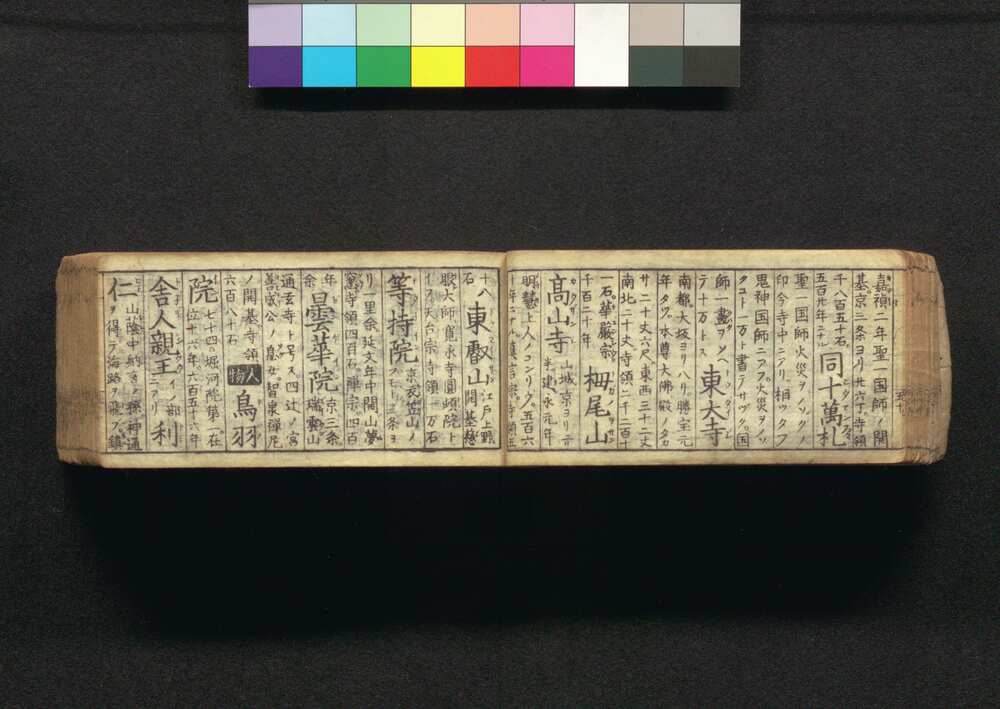 嘉禎二年聖一国師ノ開
基京三条ヨリ廿六丁寺領
千八百五十石
五百卅年ニナル
同十萬札
聖一国師火災ヲノソクノ
印今寺中ニアリ相ツタフ
鬼神国師ニアフ火災ヲノソ
クコト一万ト書テサヅク国
師一畫ヲクハ
テ十万トス
東大寺
南都大坂ヨリ八リ勝宝元
年タツ本尊大佛殿ノ高
サ二十丈六尺東西三十二丈
南北二十丈寺領二千二百十
一石華嚴宗
千百二十年
栂尾山
高山寺
山城京ヨリ二リ
半建永元年
明慧上人ノコンリウ
真言宗寺領五
十八
石
東叡山
江戸上野
開基慈
眼大師寛永寺圓頓院ト
天台宗寺領一万石
等持院
京衣笠山ノ
三条ヨ
リ一里余延文年中開山夢
窓寺領四百石禅宗
余
曇華院
京三条
瑞雲山
通玄寺ト号ス四辻ノ宮
善成公ノ息女智泉禅尼
ノ開基寺領
六百八十石
人物
鳥羽
院
七十四堀河院第一在
位十六年
舎人親王
利
仁
山蔭中納言ノ孫神通
ヲ得テ海路ヲ飛ブ鎮